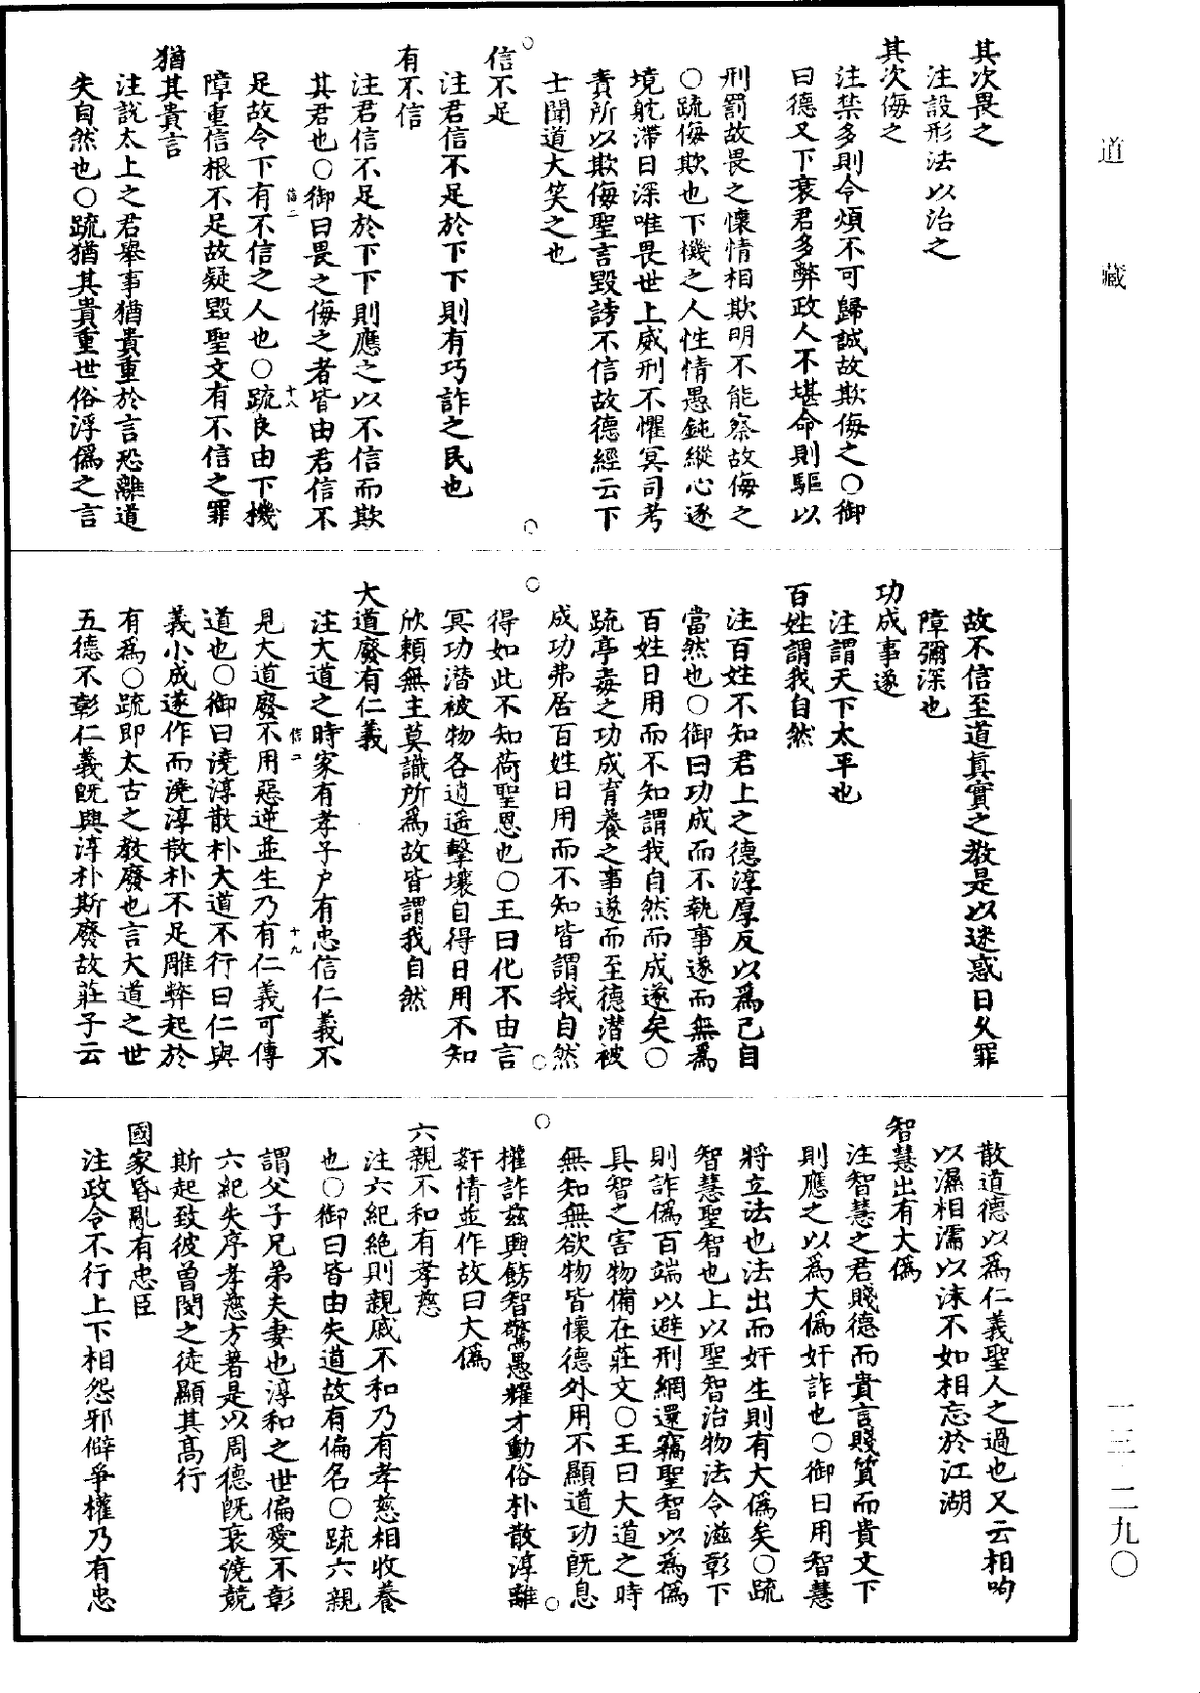 道藏
其次畏之
注設形法以治之
其次侮之
注禁多則令煩不可歸誠故欺侮之○御
曰德又下衰君多弊政人不堪命則驅以
刑罰故畏之懷情相欺明不能察故侮之
○疏侮欺也下機之人性情愚鈍縱心逐
境躭滯日深唯畏世上威刑不懼冥司考
責所以欺侮聖言毀謗不信故德經云下
士聞道大笑之也
信不足
注君信不足於下下則有巧詐之民也
有不信
注君信不足於下下則應之以不信而欺
其君也○御曰畏之侮之者皆由君信不
信二
十八
足故令下有不信之人也○疏良由下機
障重信根不足故疑毀聖文有不信之罪
猶其貴言
注說太上之君舉事猶貴重於言恐離道
失自然也○疏猶其貴重世俗浮僞之言
故不信至道真實之教是以迷惑日久罪
障彌深也
功成事遂
注謂天下太平也
百姓謂我自然
注百姓不知君上之德淳厚反以爲己自
當然也○御曰功成而不執事遂而無爲
百姓日用而不知謂我自然而成遂矣○
疏亭毒之功成育養之事遂而至德潛被
成功弗居百姓日用而不知皆謂我自然
得如此不知荷聖恩也○王曰化不由言
冥功潛被物各逍遥擊壤自得日用不知
欣賴無主莫識所爲故皆謂我自然
大道廢有仁義
注大道之時家有孝子户有忠信仁義不
信二
十九
見大道廢不用惡逆並生乃有仁義可傳
道也○御曰澆淳散朴大道不行曰仁與
義小成遂作而澆淳散朴不足雕弊起於
有爲○疏即太古之教廢也言大道之世
五德不彰仁義既興淳朴斯廢故莊子云
散道德以爲仁義聖人之過也又云相呴
以濕相濡以沫不如相忘於江湖
智慧出有大僞
注智慧之君賤德而貴言賤質而貴文下
則應之以爲大僞奸詐也○御曰用智慧
將立法也法出而奸生則有大僞矣○疏
智慧聖智也上以聖智治物法令滋彰下
則詐僞百端以避刑網還竊聖智以爲僞
具智之害物備在莊文○王曰大道之時
無知無欲物皆懷德外用不顯道功既息
權詐茲興餝智驚愚耀才動俗朴散淳離
姧情並作故曰大僞
六親不和有孝慈
注六紀絶則親戚不和乃有孝慈相收養
也○御曰皆由失道故有偏名○疏六親
謂父子兄弟夫妻也淳和之世偏愛不彰
六紀失序孝慈方著是以周德既衰澆競
斯起致彼曾閔之徒顯其高行
國家昏亂有忠臣
注政令不行上下相怨邪僻爭權乃有忠
一三·二九〇